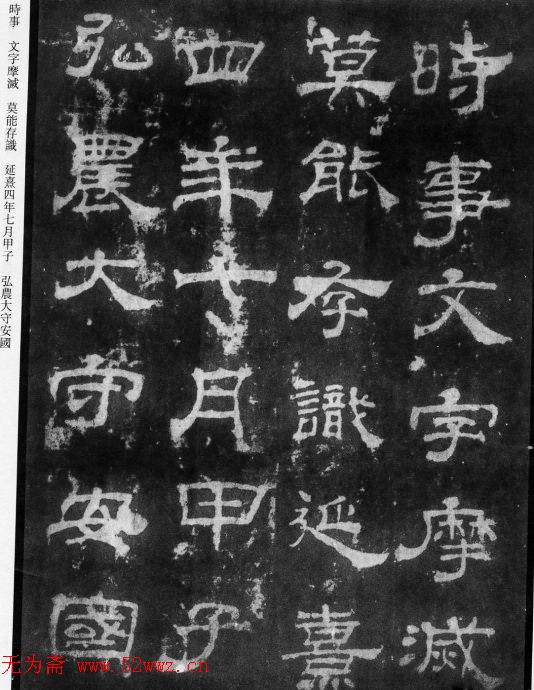 時事文字摩滅
莫能存識延熹
四年七月甲子
弘農大守安國
時事 文字摩滅 莫能存識 延熹四年七月甲子 弘農大守安國
无为斋 www.52wwz.cn